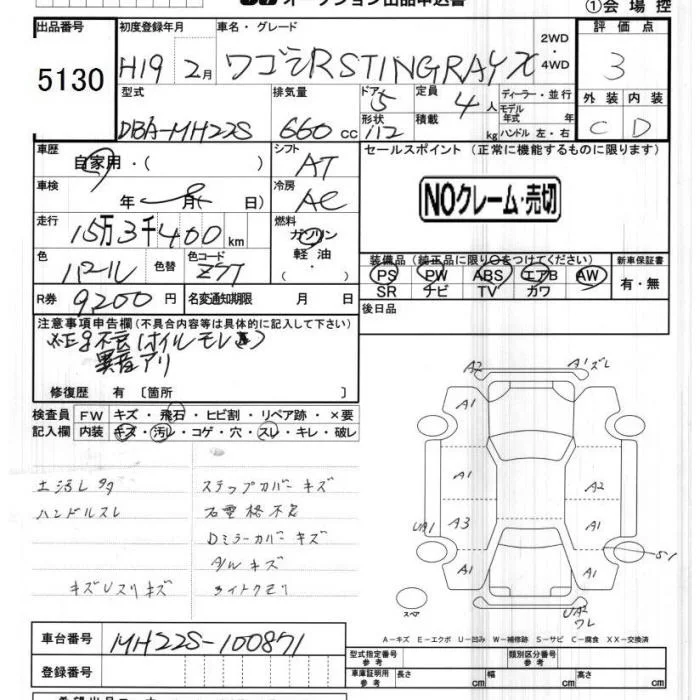 オークション出品申込書
①会場控
出品番号 初度登録年月 車名・グレード 2WD・4WD 評価点
5130 H19 2月 ワゴンRSTINGRAY X 3
型式 排気量 ドア 5 定員 4人 ディーラー・並行 外装 内装
モデル年式 年
DBA-MH22S 660cc 形状 112 積載 kg ハンドル 左・右 C D
車歴 自家用・( ) シフト AT セールスポイント (正常に機能するものに限ります)
車検 年 月 日) 冷房 AC
NOクレーム・売切
走行 15万3千400km 燃料 ガソリン
軽油
・( )
色 パール 色替 色コード Z7T
装備品 (純正品に限り○をつけてください) 新車保証書
PS PW ABS エアB AW 有・無
SR ナビ TV カワ
R券 9200円 名変通知期限 月 日
後日品
注意事項申告欄 (不具合内容等は具体的に記入して下さい)
異音アリ
修復歴 有 〔箇所 〕
検査員 FW キズ・飛石・ヒビ割・リペア跡・×要
記入欄 内装 キズ・汚レ・コゲ・穴・スレ・キレ・破レ
ステップカバーキズ
ハンドルスレ
Dミラーカバーキズ
A/Wキズ
ライトクモリ
A2 A1 ズレ
A1
A1 A2
UA1 A3 A1
S1
A1 A1
スペア
UA2 ワレ
A-キズ E-エクボ U-凹み W-補修跡 S-サビ C-腐食 XX-交換済
車台番号 MH22S-100871
型式指定番号 参考 類別区分番号 参考
登録番号
車庫証明用 参考 長さ cm 幅 cm 高さ cm